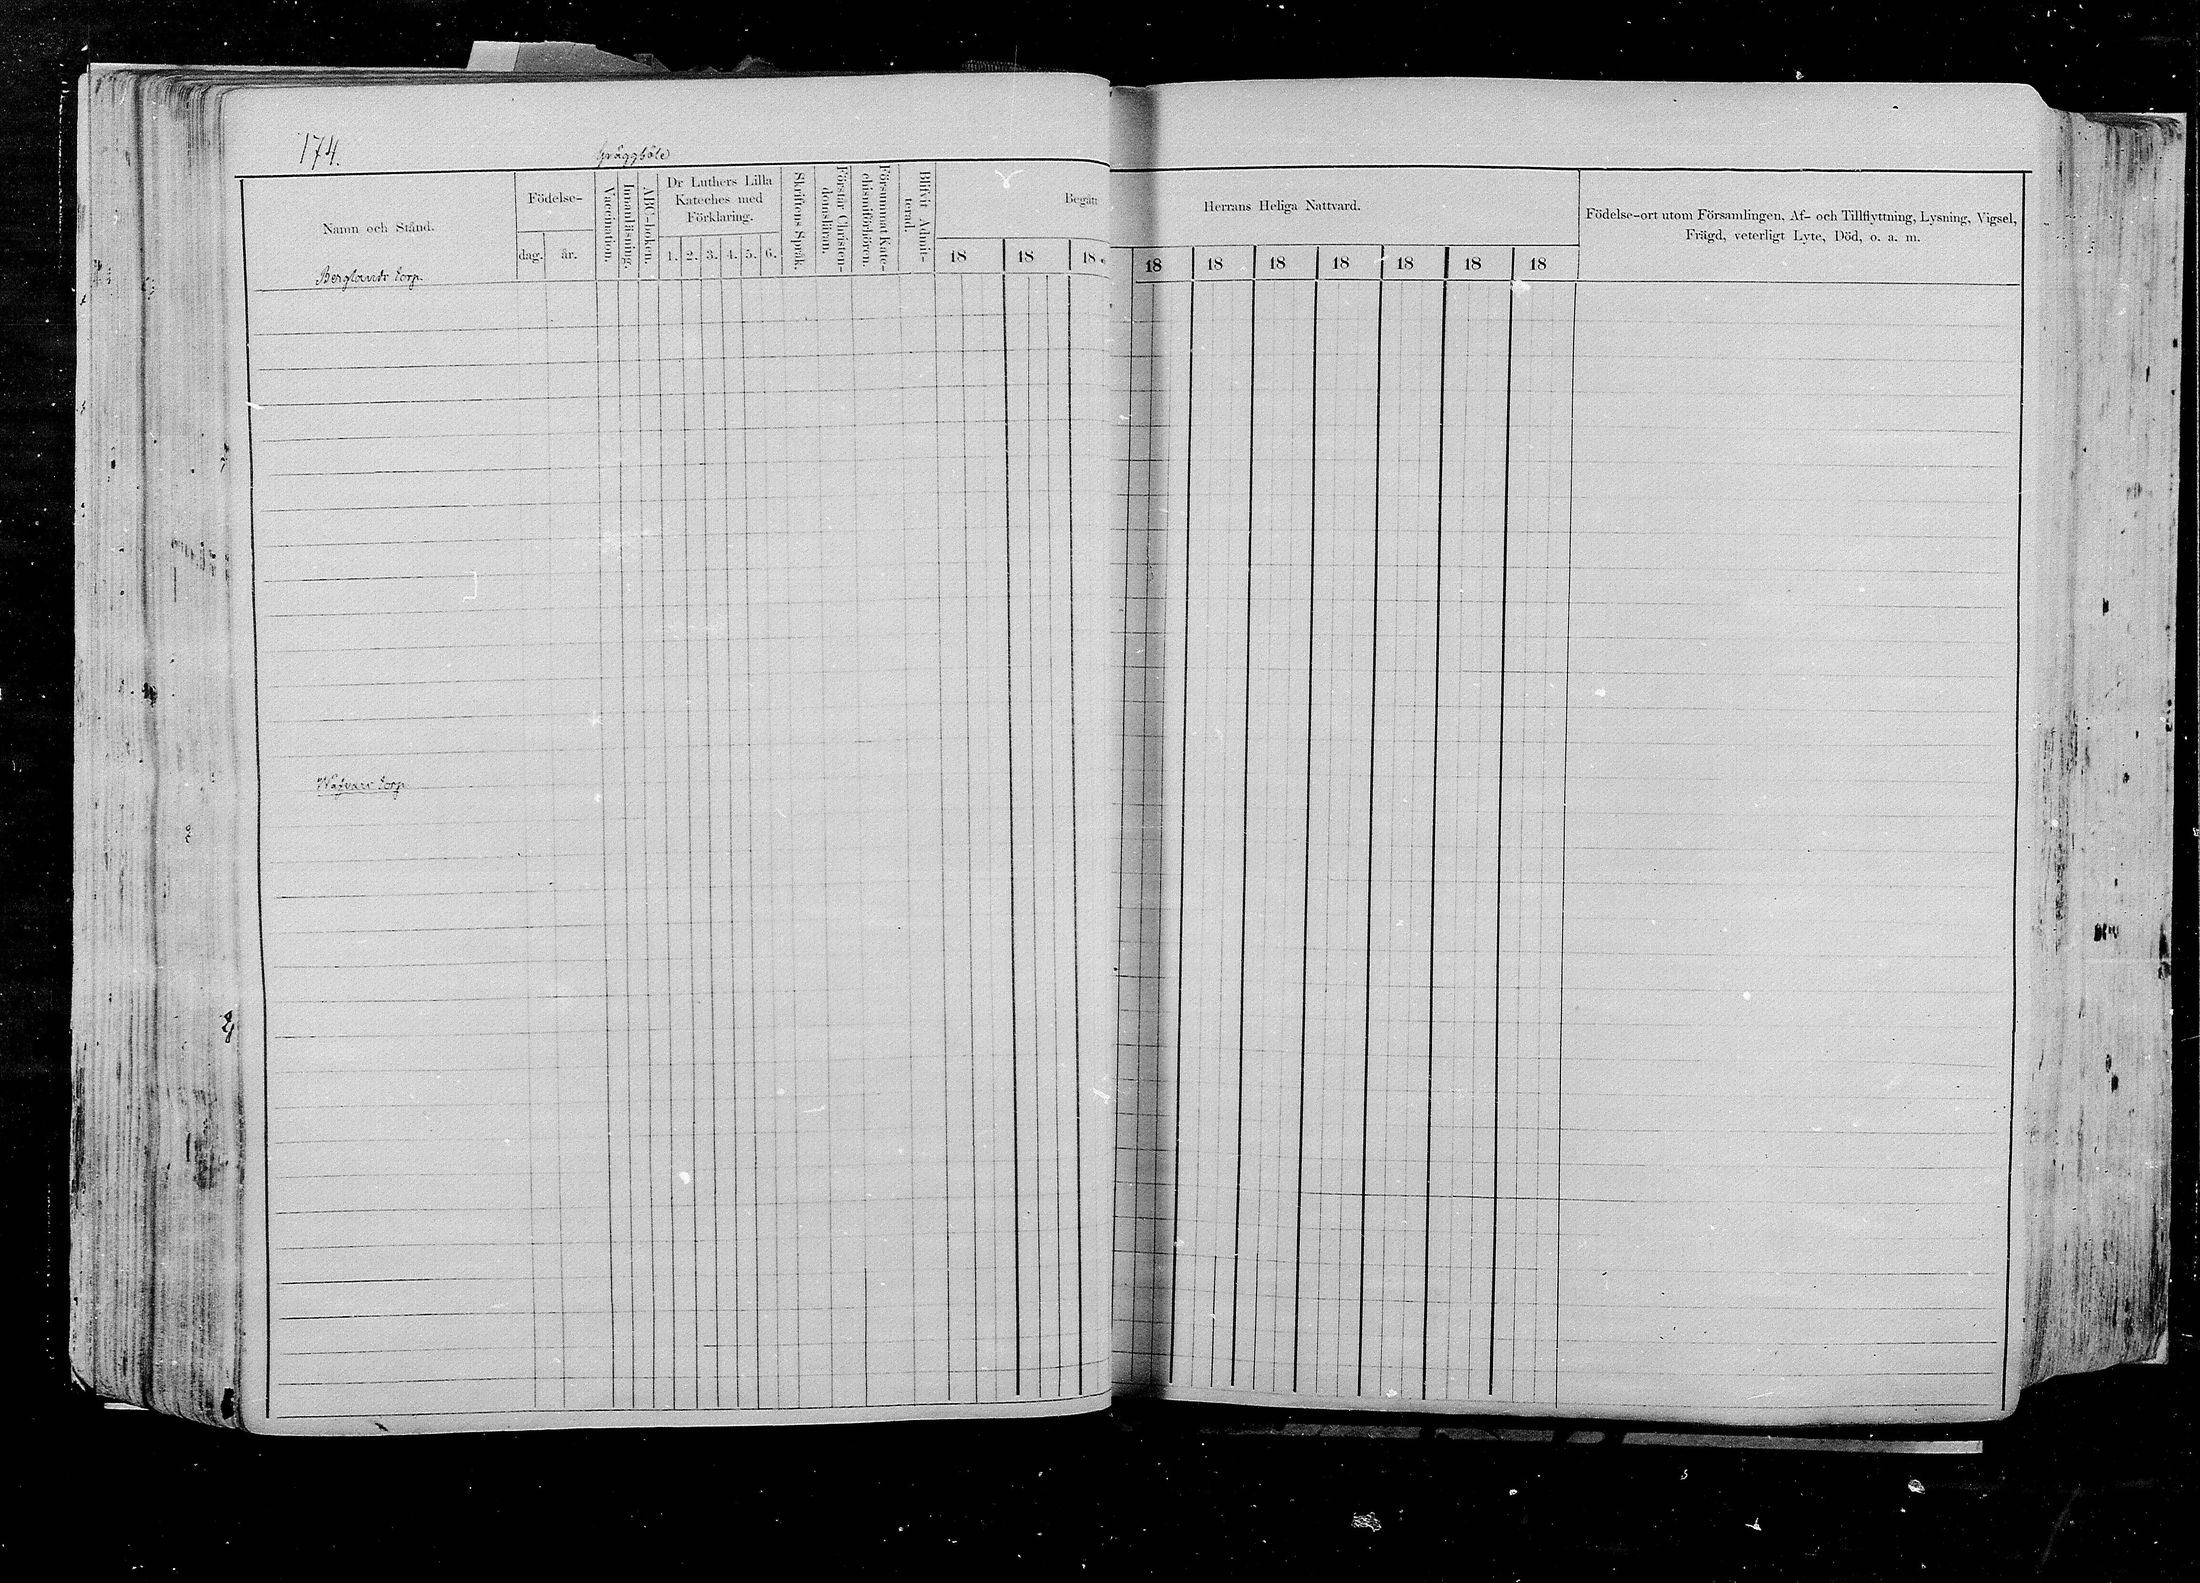 174.
Gräggböle
Namn och Stånd.
Födelse-
dag.
år.
Vaccination.
Innanläsning.
ABC-boken.
Dr Luthers Lilla
Kateches med
Förklaring.
1. 2. 3. 4. 5. 6.
Skriftens Språk.
Förstår Christen-
domsläran.
Försummat Kate-
chismiförhören.
Blifvit Admit-
terad.
Begått
Herrans Heliga Nattvard.
18 18 18 18 18 18 18 18 18 18
Födelse-ort utom Församlingen, Af- och Tillflyttning, Lysning, Vigsel,
Frägd, veterligt Lyte, Död, o. a. m.
Berglands torp.
torp